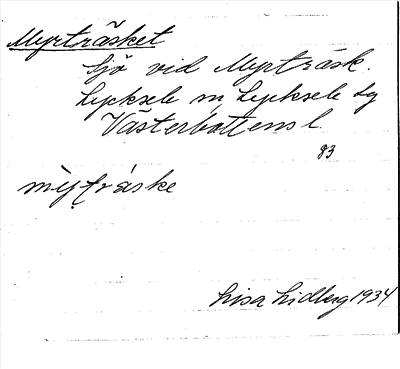 Myrträsket
Sjö vid Myrträsk.
Lycksele sn, Lycksele lg
Västerbottens l.
83
mỳṭrá̀ske
Lisa Lidberg 1934